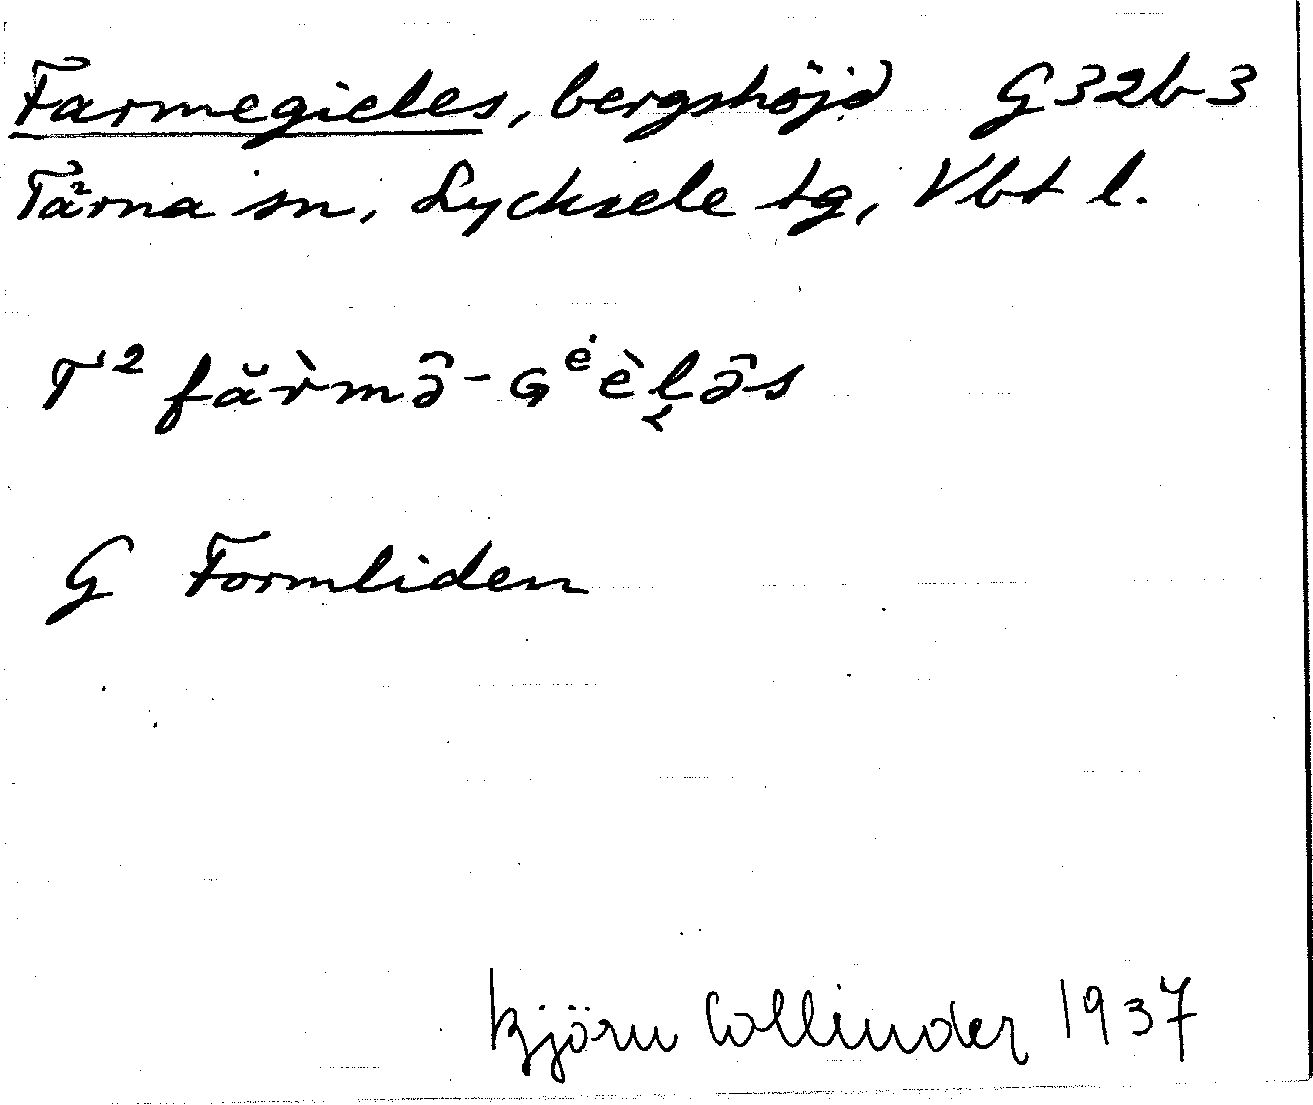 Farmegieles, bergshöjd G32b3
Tärna sn, Lycksele tg, Vbt l.
T² făr̀mə̑-Gᵉ̇èl̬ə̑s
G Formliden
Björn Collinder 1937